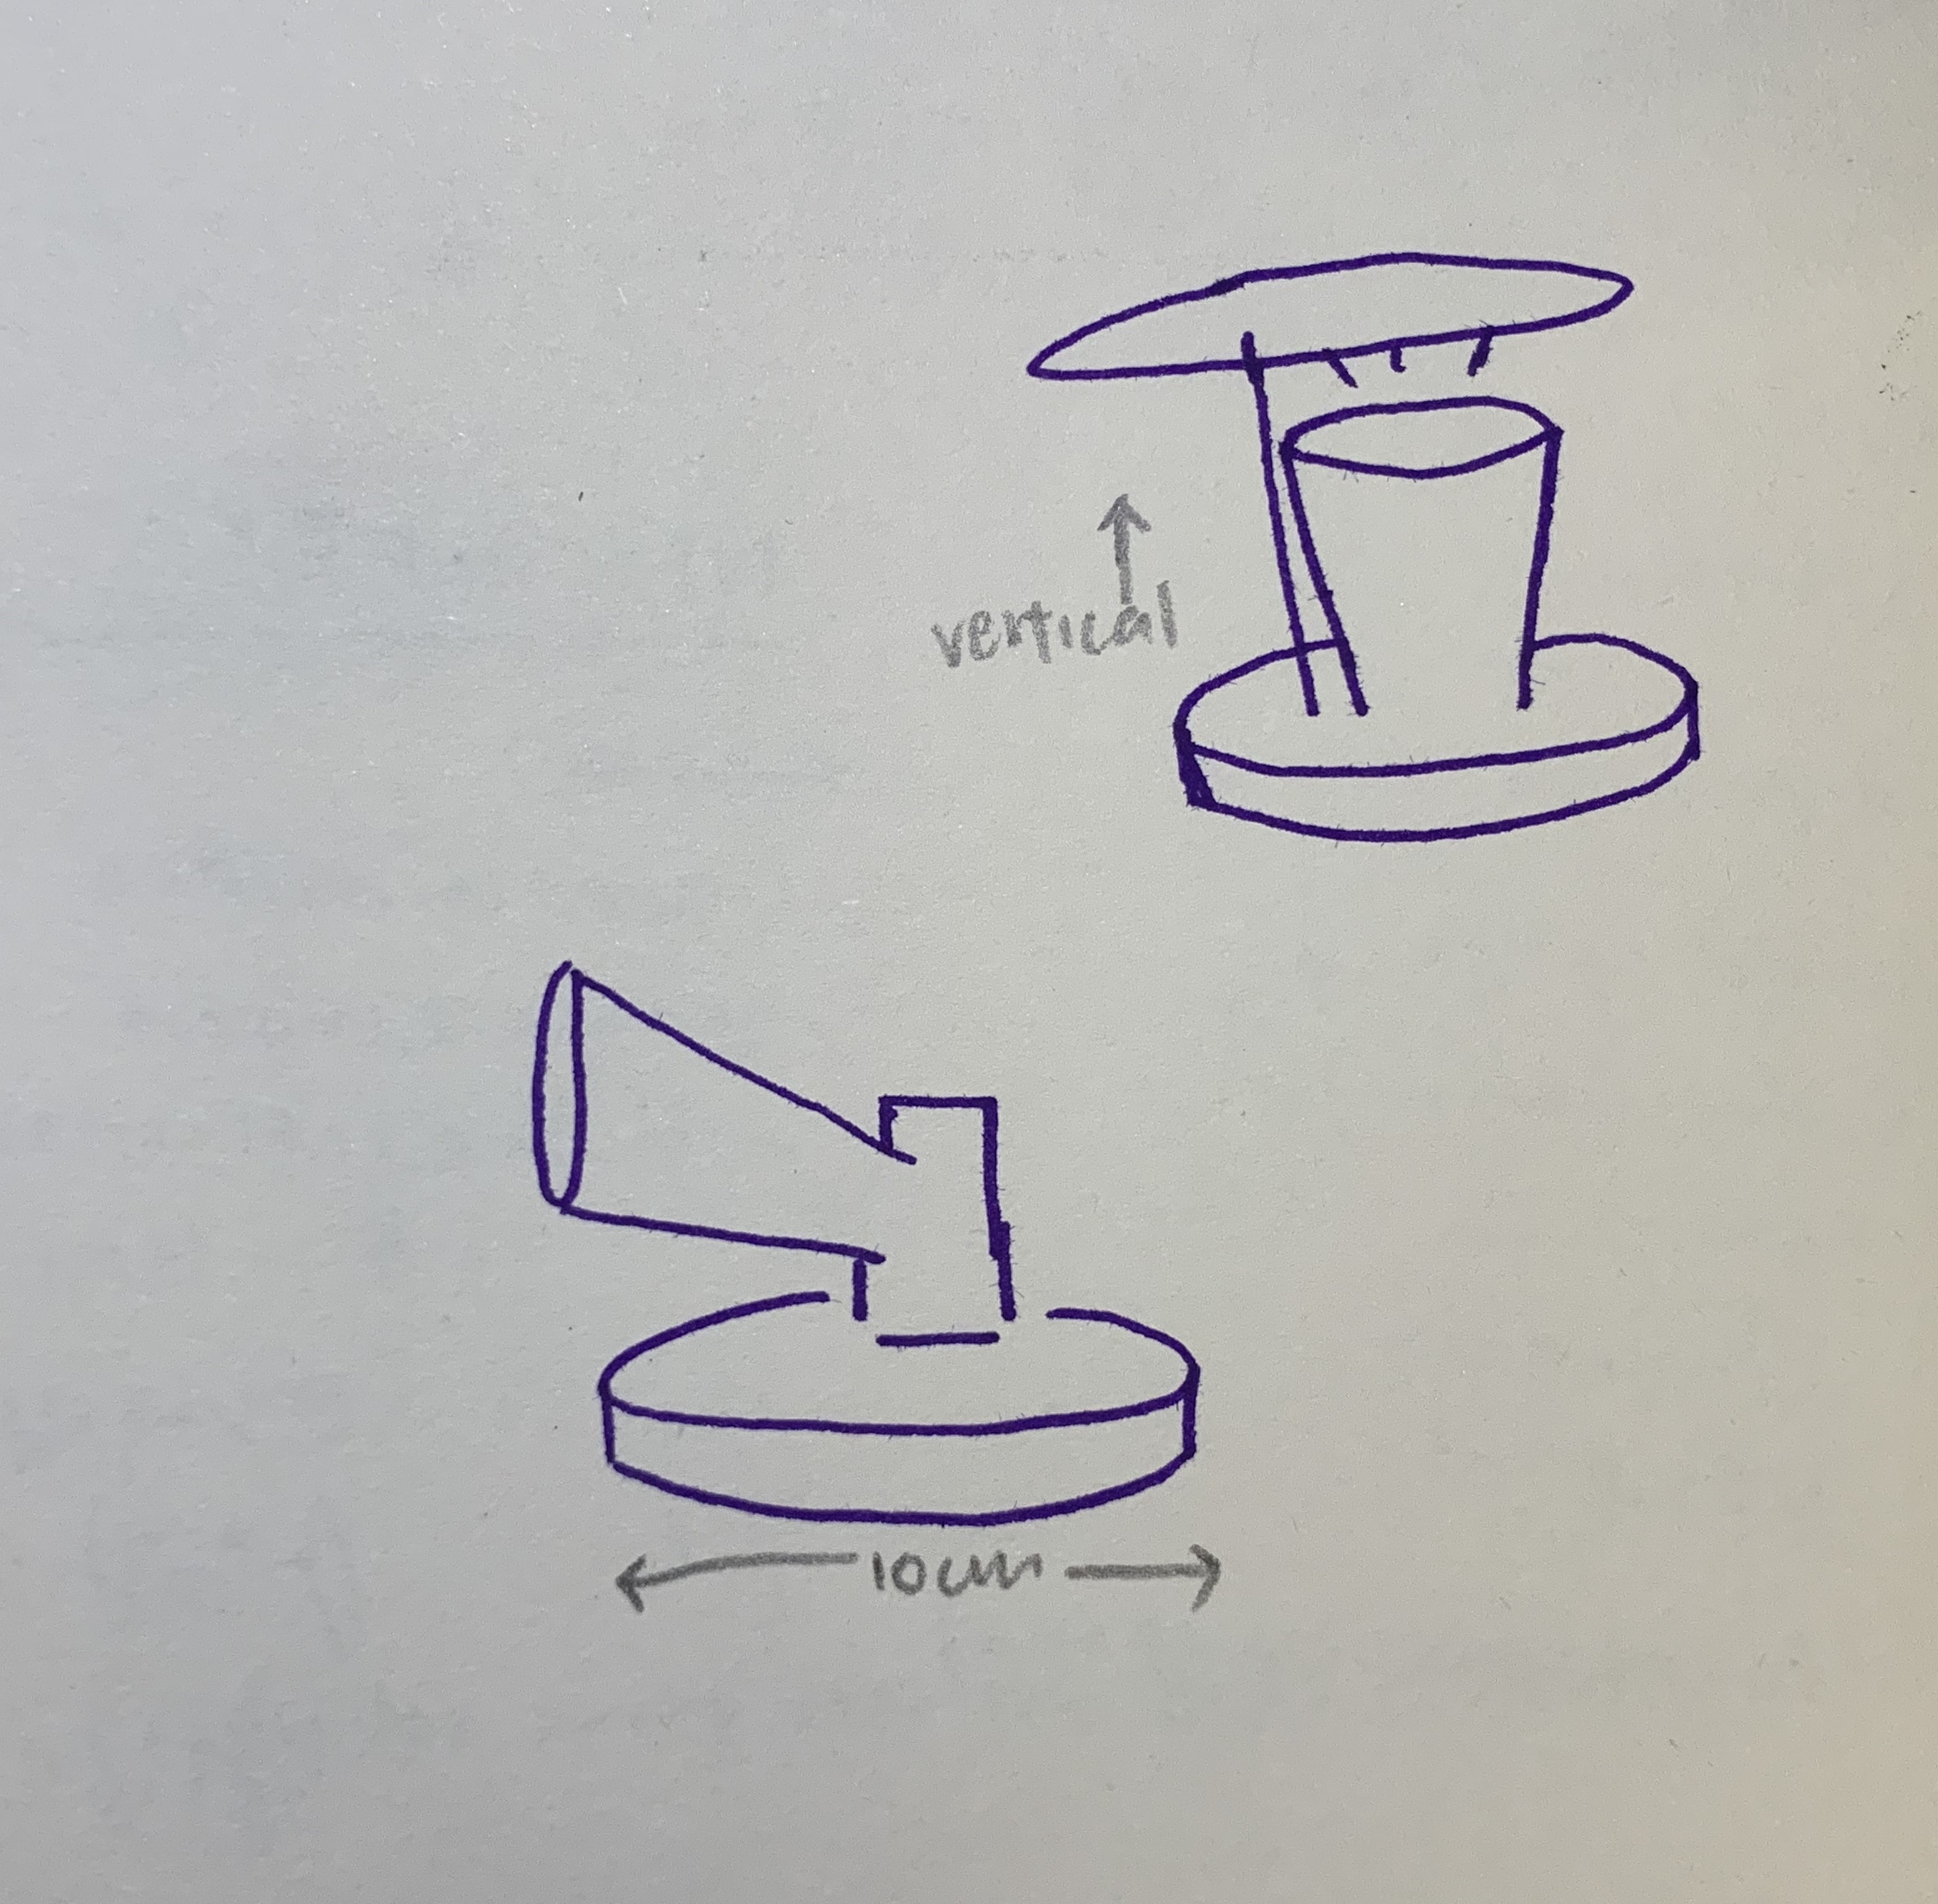 vertical
10cm